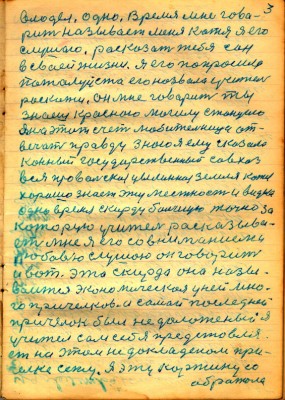 3
слюдел, одно, время мне гова-
рит называет меня Катя я его
слушаю, расказат тебя сан
в своей жизни. Я его попросила
пожалуйста его
раскажи, он мне говорит ты
знаеш красною могилу станцию
я на этот счет любителница от-
вечат правду знаю я ему сказала
Конный государственный совхоз
вся провалская земля Катя
хорошо знает эту местность и видна
одну время скирду болшую точно за
которую учител расказыва-
ет мне я его со вниманием
слушаю он говорит
и вот. эта скирда она назы-
вается экономическая у ней мно-
го причелков. а самай последней
причелок был не доложенный я
учител сам себя представля
ет на этом недокладеном при-
челке сежу. Я эту картину со
обратола